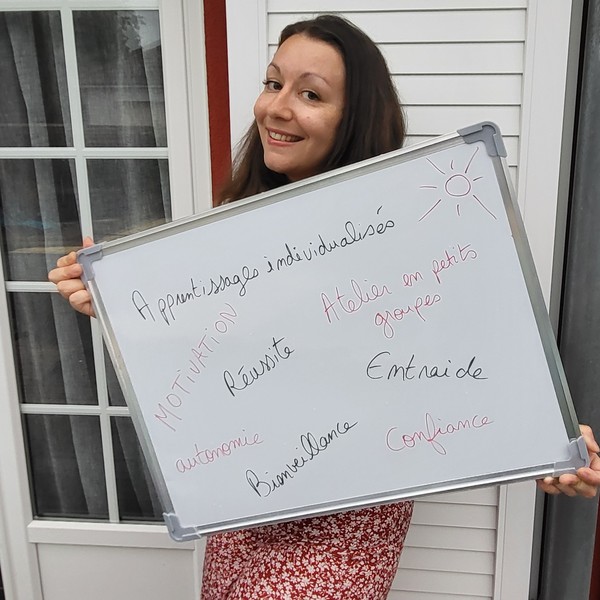 Apprentissages individualisés
Atelier en petits
groupes
MOTIVATION
Réussite
Entraide
autonomie
Bienveillance
Confiance